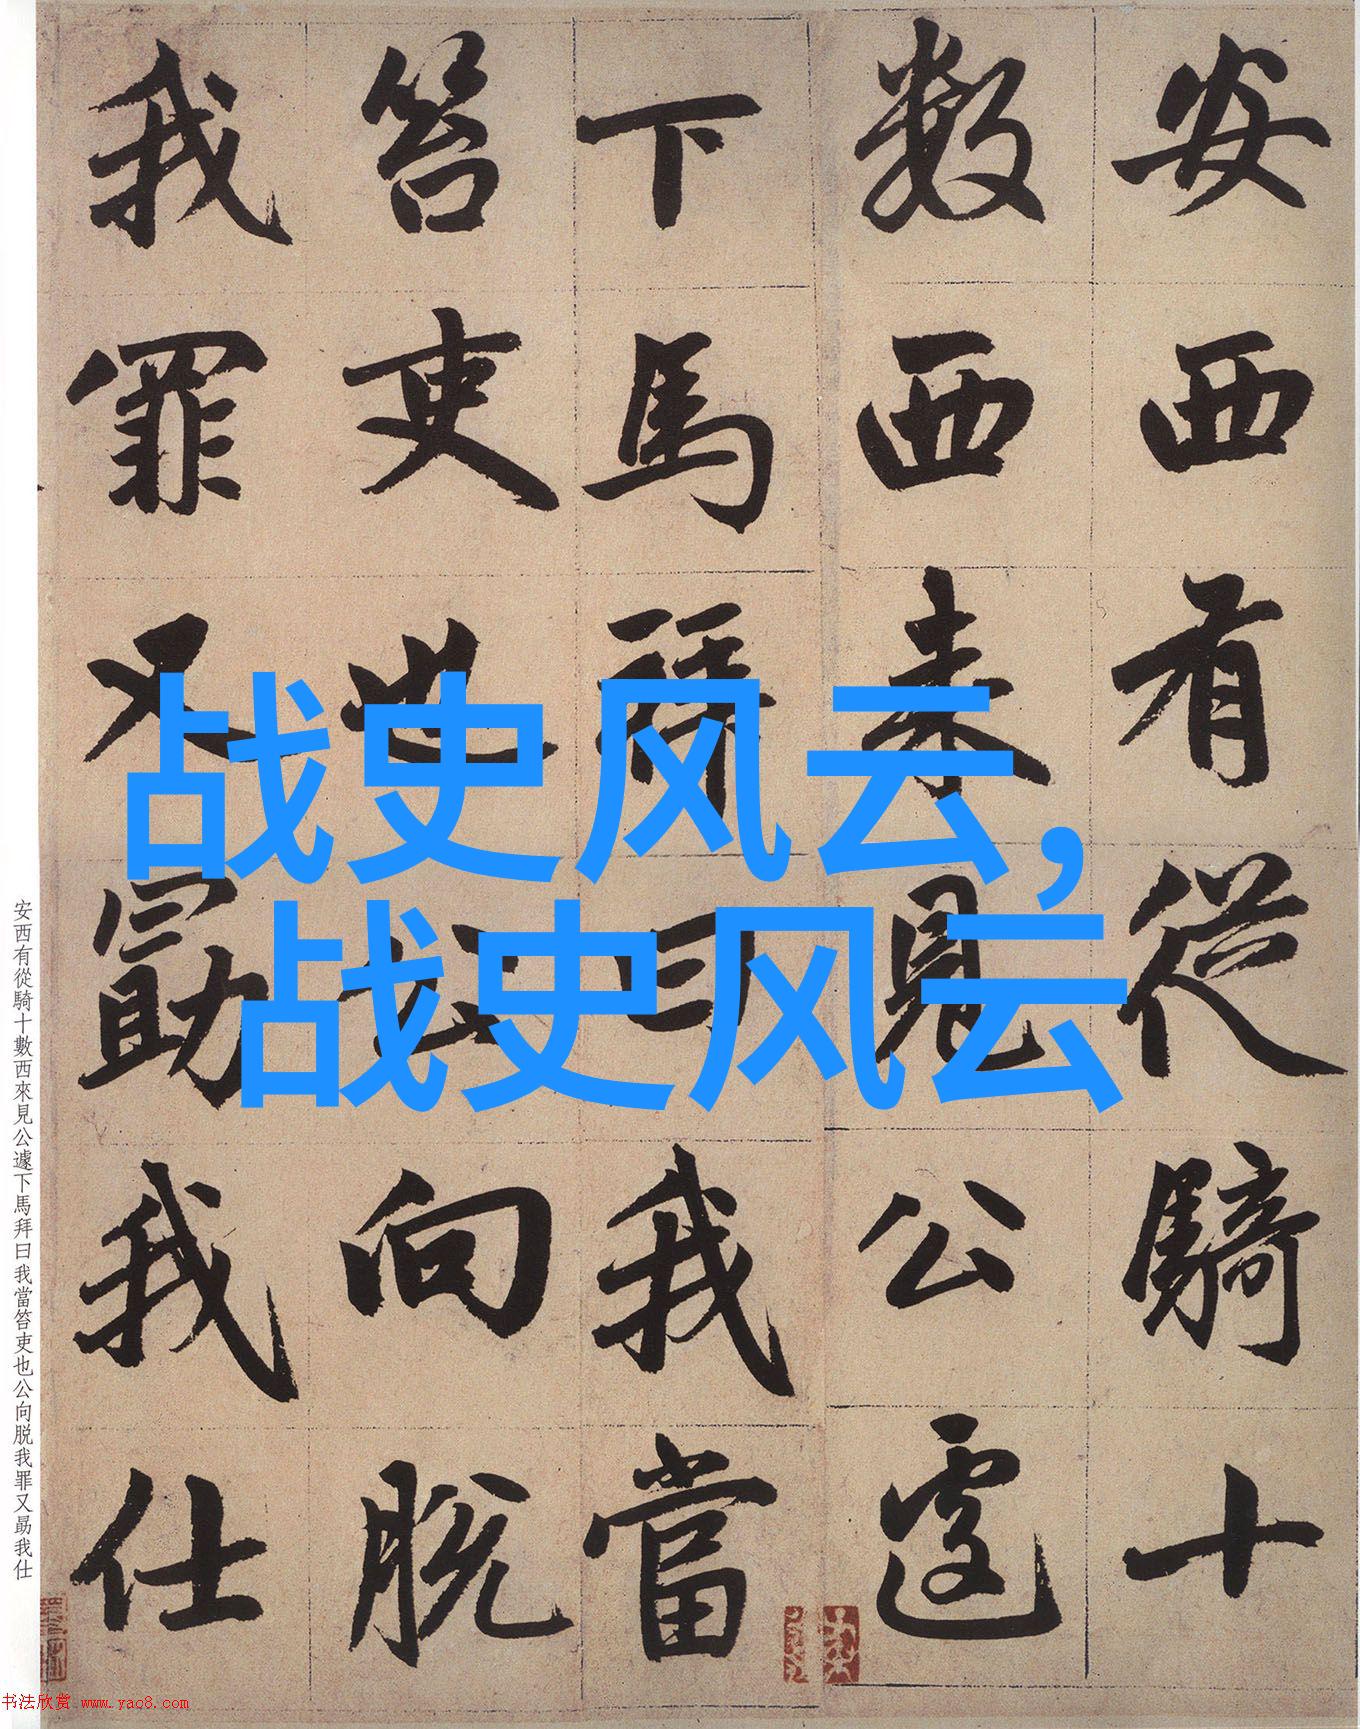 安西有從騎十
數西来見公遽
下馬拜曰我當
笞吏也公向脱
我罪又勗我仕
战史风云,
战史风云
安西有從騎十數西來見公遽下馬拜曰我當笞吏也公向脱我罪又勗我仕
书法欣赏 www.yac8.com